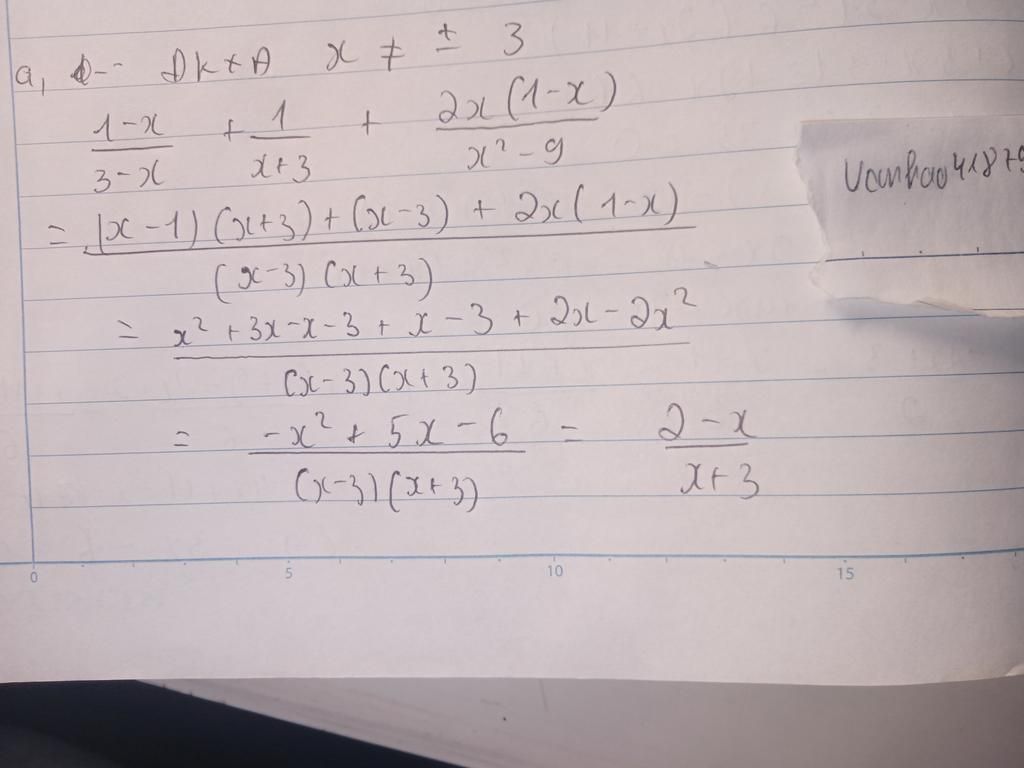 a, ĐKXĐ x ≠ ± 3
(1-x)/(3-x) + 1/(x+3) + 2x(1-x)/(x² - 9)
= ((x-1)(x+3) + (x-3) + 2x(1-x))/((x-3)(x+3))
= (x² + 3x - x - 3 + x - 3 + 2x - 2x²)/((x-3)(x+3))
= (-x² + 5x - 6)/((x-3)(x+3)) = (2-x)/(x+3)
Vanhao41879
0 5 10 15